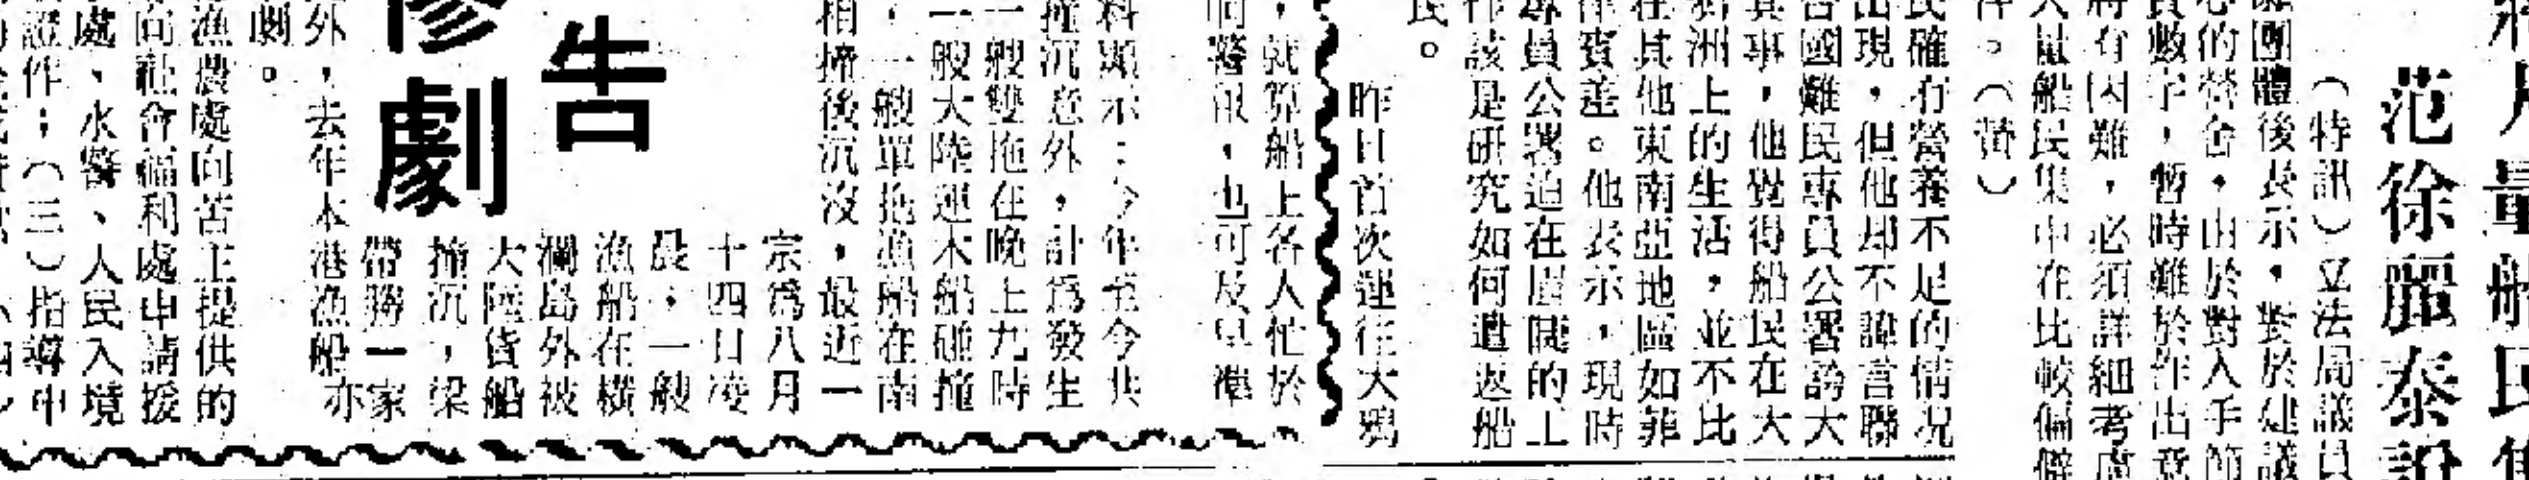 將
量船民集
范徐麗泰說
（特訊）立法局議員
團體後表示，對於建議
的營舍，由於對入手節
實數字，暫時難於作出意
將有困難，必須詳細考慮
大量船民集中在比較偏僻
件。（營）
民確有營養不足的情況
出現，但他却不諱言聯
合國難民專員公署誇大
其事，他覺得船民在大
鴉洲上的生活，並不比
在其他東南亞地區如菲
律賓差。他表示，現時
專員公署迫在眉睫的工
作該是研究如何遣返船
民。
昨日首次運往大鴉
，就算船上各人忙於
向警訊，也可及早準
料顯示：今年至今共
撞沉意外，計為發生
一艘雙拖在晚上九時
一艘大陸運木船碰撞
，一艘單拖漁船在南
相撞後沉沒，最近一
宗為八月
十四日凌
晨，一艘
漁船在橫
瀾島外被
大陸貨船
撞沉，梁
帶勝一家
告
慘劇
外，去年本港漁船亦
劇。
漁農處向苦主提供的
向社會福利處申請援
處、水警、人民入境
證件；（三）指導中